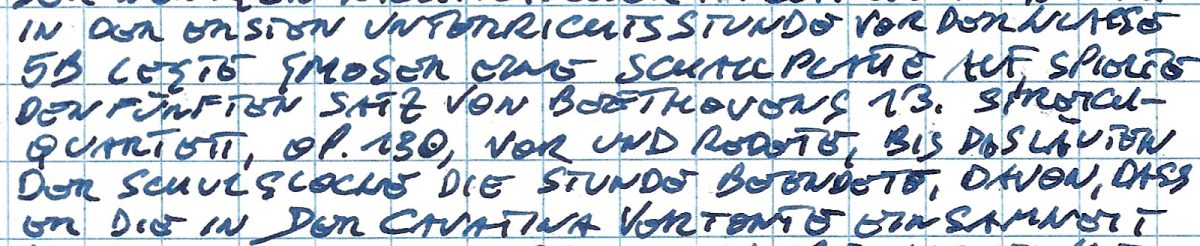 IN DER ERSTEN UNTERRICHTSSTUNDE VOR DER KLASSE
5B LEGTE GMOSER EINE SCHALLPLATTE AUF, SPIELTE
DEN FÜNFTEN SATZ VON BEETHOVENS 13. STREICH-
QUARTETT, OP. 130, VOR UND REDETE, BIS DAS LÄUTEN
DER SCHULGLOCKE DIE STUNDE BEENDETE, DAVON, DASS
ER DIE IN DER CAVATINA VERTONTE EINSAMKEIT